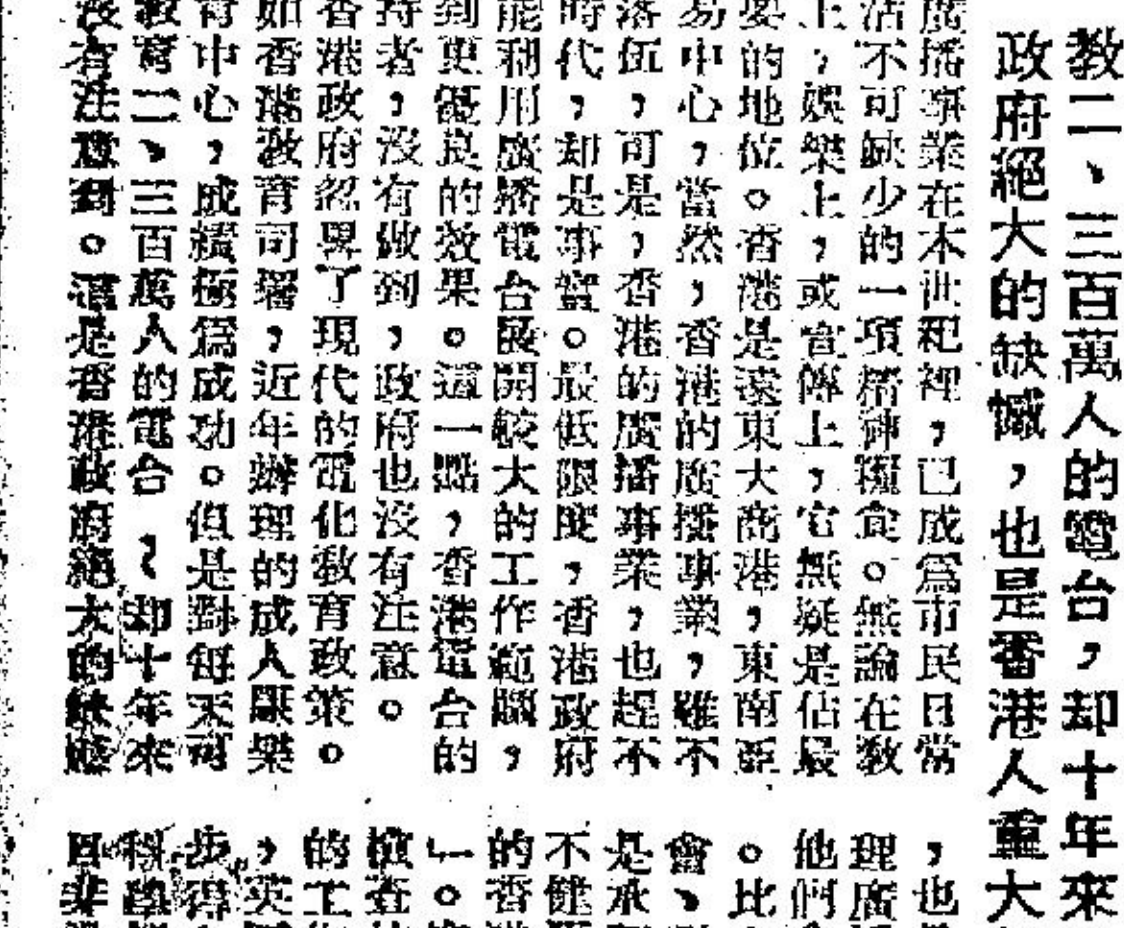 教二、三百萬人的電台，却十年來
政府絕大的缺憾，也是香港人重大
廣播事業在本世紀裡，已成爲市民日常
活不可缺少的一項精神糧食。無論在教
上，娛樂上，或宣傳上，它無疑是佔最
要的地位。香港是遠東大商港，東南亞
易中心，當然，香港的廣播事業，雖不
落伍，可是，香港的廣播事業，也趕不
時代，却是事實。最低限度，香港政府
能利用廣播電台展開較大的工作範圍，
到更優良的效果。這一點，香港電台的
持者，沒有做到，政府也沒有注意。
香港政府忽畧了現代的電化教育政策。
如香港教育司署，近年辦理的成人康樂
育中心，成績極爲成功。但是對每天可
教育二、三百萬人的電台，却十年來
沒有注意到。這是香港政府絕大的缺憾
，也
理廣
他們
。比
會、
是承
不健
的香
」。
檢查
的工
，英
步得
科學
且非